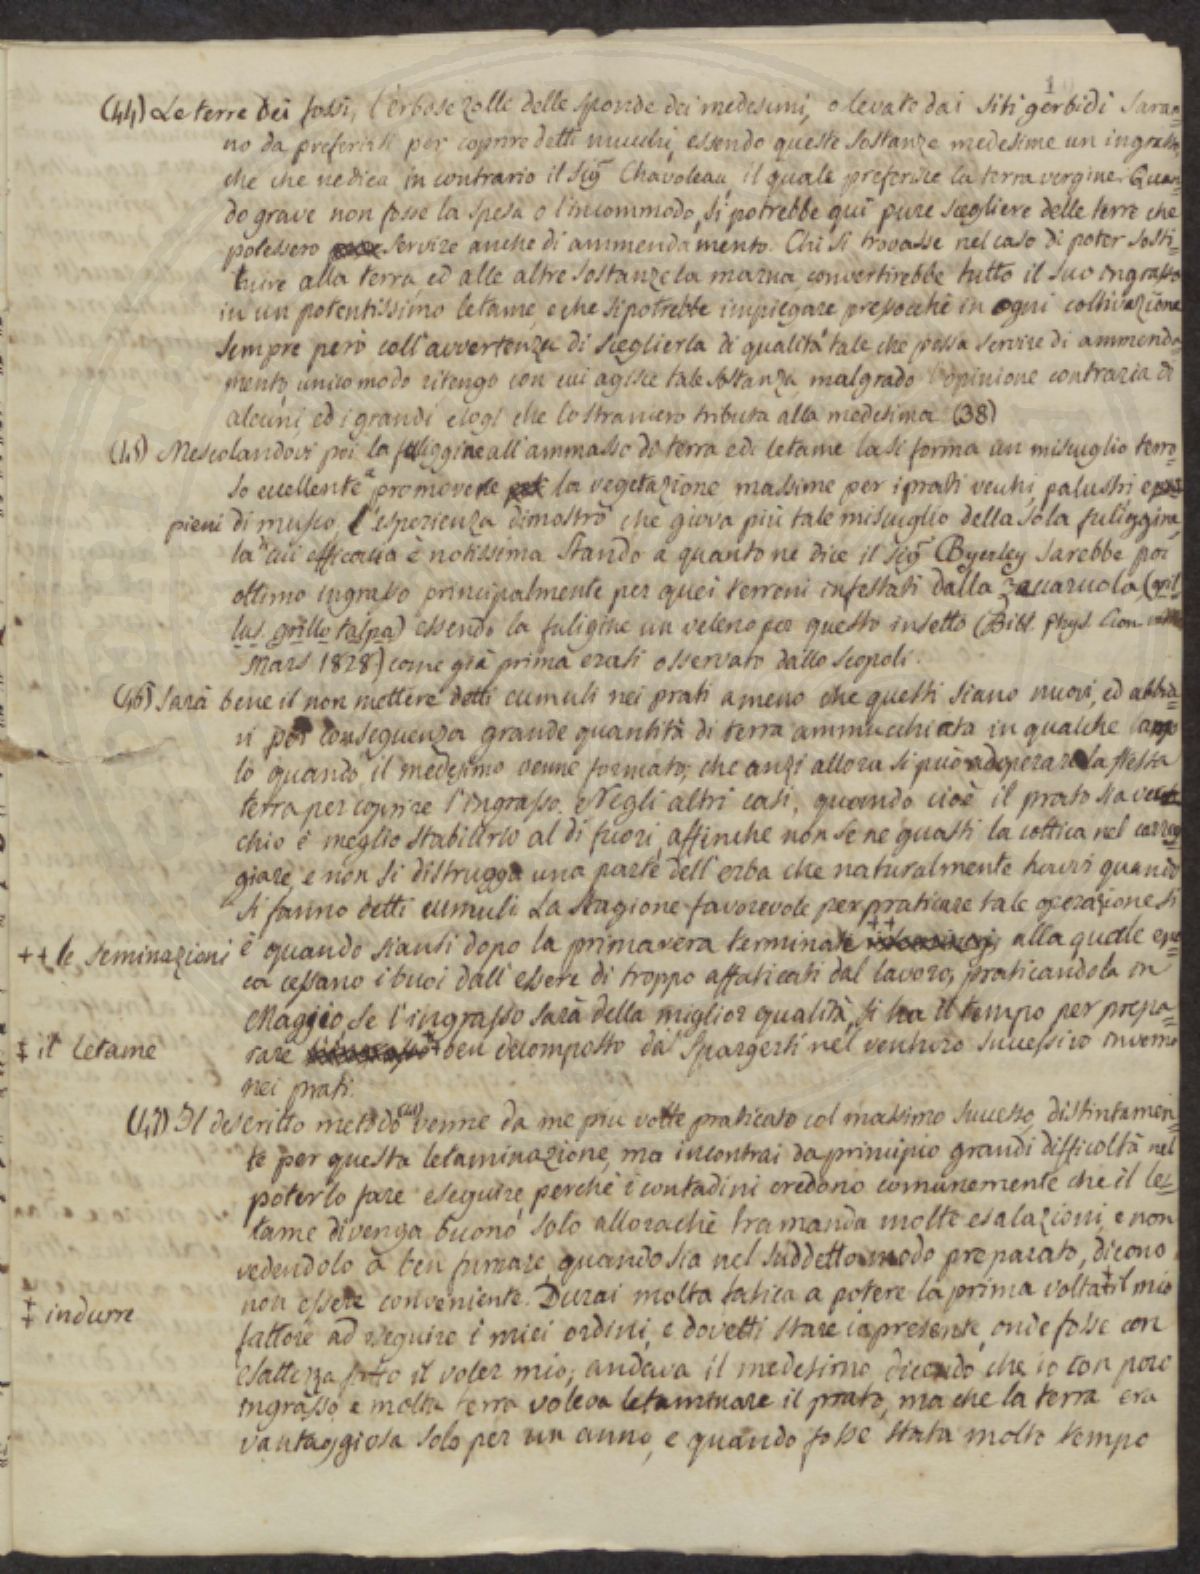 (44) Le terre dei fossi, l'erbose zolle delle sponde dei medesimi, o levate dai siti gerbidi saran-
no da preferirsi per coprire detti mucchi, essendo queste sostanze medesime un ingrasso,
che che ne dica in contrario il Sig.r Chavoleau, il quale preferisce la terra vergine. Quan-
do grave non fosse la spesa o l'incommodo, si potrebbe qui pure scegliere delle terre che
potessero servire anche di ammendamento. Chi si trovasse nel caso di poter sosti-
tuire alla terra ed alle altre sostanze la marna, convertirebbe tutto il suo ingrasso
in un potentissimo letame, e che si potrebbe impiegare pressochè in ogni coltivazione
sempre però coll'avvertenza di sceglierla di qualità tale che possa servire di ammenda-
mento, unico modo ritengo con cui agisce tale sostanza, malgrado l'opinione contraria di
alcuni, ed i grandi elogi che lo straniero tributa alla medesima (38)
(45) Mescolandovi poi la fuliggine all'ammasso di terra e di letame la si forma un miscuglio terro-
so eccellente a promovere la vegetazione massime per i prati vecchi, palustri, e
pieni di musco. L'esperienza dimostrò che giova più tale miscuglio della sola fuliggine,
la cui efficacia è notissima. Stando a quanto ne dice il Sig.r Byerley sarebbe poi
ottimo ingrasso principalmente per quei terreni infestati dalla zaccaruola (gril-
lus grillotalpa) essendo la fuligine un veleno per questo insetto (Bibl. Phys. Econ.
Mars 1828) come già prima erasi osservato dallo Scopoli.
(46) Sarà bene il non mettere detti cumuli nei prati a meno che questi siano nuovi, ed abbia-
vi per conseguenza grande quantità di terra ammucchiata in qualche lato
lo quando il medesimo venne formato; che anzi allora si può adoperare la stessa
terra per coprire l'ingrasso. Negli altri casi, quando cioè il prato sia vec-
chio è meglio stabilirlo al di fuori, affinche non se ne guasti la cottica nel carreg-
giare, e non si distrugga una parte dell'erba che naturalmente havvi quando
si fanno detti cumuli. La stagione favorevole per praticare tale operazione si
++ le seminazioni è quando siansi dopo la primavera terminate ++ alla quale epo-
ca cessano i buoi dall'essere di troppo affaticati dal lavoro; praticandola in
Maggio, se l'ingrasso sarà della miglior qualità, si ha il tempo per prepa-
‡ il letame rare ben decomposto da spargersi nel venturo successivo inverno
nei prati.
(47) Il descritto metodo venne da me più volte praticato col massimo successo, distintamen-
te per questa letaminazione, ma incontrai da principio grandi difficoltà nel
poterlo fare eseguire, perchè i contadini credono comunemente che il le-
tame divenga buono solo allorachè tramanda molte esalazioni, e non
vedendolo a ben fumare, quando sia nel suddetto modo preparato, dicono
non essere conveniente. Durai molta fatica a potere la prima volta ‡ il mio
‡ indurre
fattore ad eseguire i miei ordini, e dovetti stare io presente, onde fosse con
esattezza fatto il voler mio; andava il medesimo dicendo, che io con poco
ingrasso, e molta terra voleva letaminare il prato, ma che la terra era
vantaggiosa solo per un anno, e quando fosse stata molto tempo